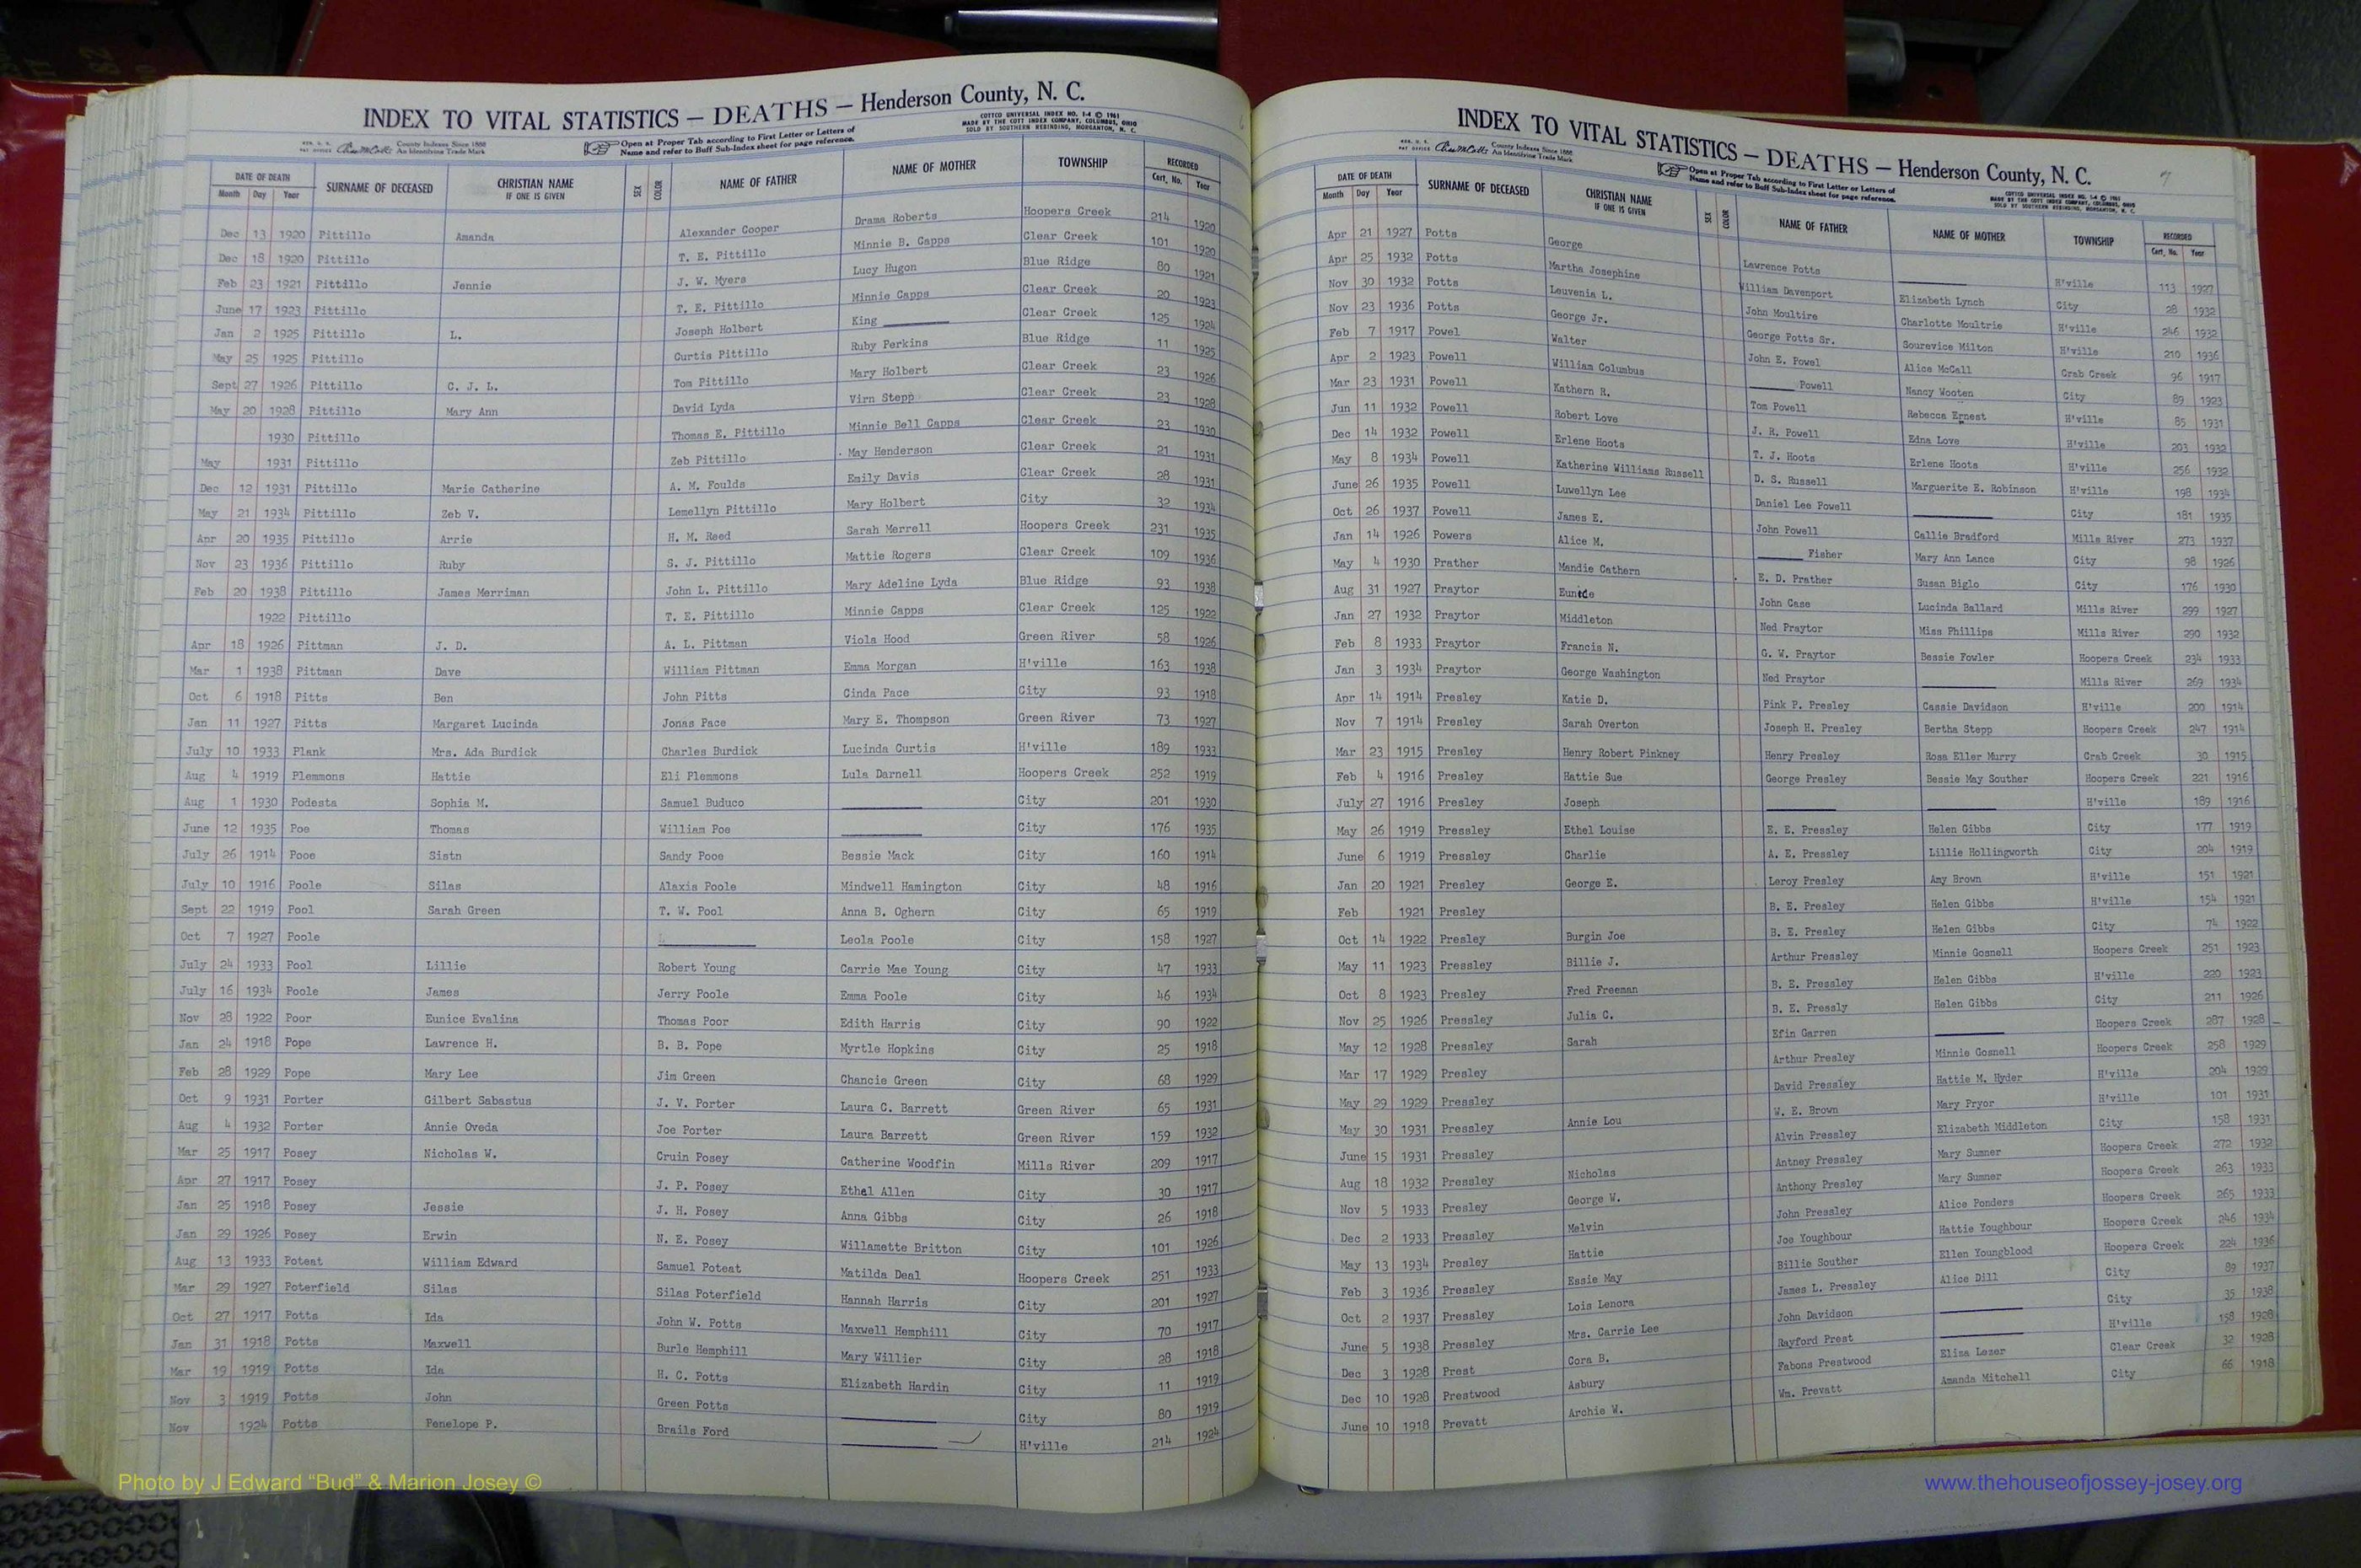 INDEX TO VITAL STATISTICS — DEATHS — Henderson County, N. C.
County Indexes Since 1888
An Identifying Trade Mark
Open at Proper Tab according to First Letter or Letters of
Name and refer to Buff Sub-Index sheet for page reference.
COTTCO UNIVERSAL INDEX NO. 1-4 © 1961
MADE BY THE COTT INDEX COMPANY, COLUMBUS, OHIO
SOLD BY SOUTHERN REBINDING, MORGANTON, N. C.
DATE OF DEATH SURNAME OF DECEASED CHRISTIAN NAME IF ONE IS GIVEN SEX COLOR NAME OF FATHER NAME OF MOTHER TOWNSHIP RECORDED
Month Day Year Cert. No. Year
Dec 13 1920 Pittillo Amanda Alexander Cooper Drama Roberts Hoopers Creek 214 1920
Dec 18 1920 Pittillo T. E. Pittillo Minnie B. Capps Clear Creek 101 1920
Feb 23 1921 Pittillo Jennie J. W. Myers Lucy Hugon Blue Ridge 80 1921
June 17 1923 Pittillo T. E. Pittillo Minnie Capps Clear Creek 20 1923
Jan 2 1925 Pittillo L. Joseph Holbert King ____ Clear Creek 125 1924
May 25 1925 Pittillo Curtis Pittillo Ruby Perkins Blue Ridge 11 1925
Sept 27 1926 Pittillo C. J. L. Tom Pittillo Mary Holbert Clear Creek 23 1926
May 20 1928 Pittillo Mary Ann David Lyda Virn Stepp Clear Creek 23 1928
1930 Pittillo Thomas E. Pittillo Minnie Bell Capps Clear Creek 23 1930
May 1931 Pittillo Zeb Pittillo May Henderson Clear Creek 21 1931
Dec 12 1931 Pittillo Marie Catherine A. M. Foulds Emily Davis Clear Creek 28 1931
May 21 1934 Pittillo Zeb V. Lemellyn Pittillo Mary Holbert City 32 1934
Apr 20 1935 Pittillo Arrie H. M. Reed Sarah Merrell Hoopers Creek 231 1935
Nov 23 1936 Pittillo Ruby S. J. Pittillo Mattie Rogers Clear Creek 109 1936
Feb 20 1938 Pittillo James Merriman John L. Pittillo Mary Adeline Lyda Blue Ridge 93 1938
1922 Pittillo T. E. Pittillo Minnie Capps Clear Creek 125 1922
Apr 18 1926 Pittman J. D. A. L. Pittman Viola Hood Green River 58 1926
Mar 1 1938 Pittman Dave William Pittman Emma Morgan H'ville 163 1938
Oct 6 1918 Pitts Ben John Pitts Cinda Pace City 93 1918
Jan 11 1927 Pitts Margaret Lucinda Jonas Pace Mary E. Thompson Green River 73 1927
July 10 1933 Plank Mrs. Ada Burdick Charles Burdick Lucinda Curtis H'ville 189 1933
Aug 4 1919 Plemmons Hattie Eli Plemmons Lula Darnell Hoopers Creek 252 1919
Aug 1 1930 Podesta Sophia M. Samuel Buduco ____ City 201 1930
June 12 1935 Poe Thomas William Poe ____ City 176 1935
July 26 1914 Pooe Sistn Sandy Pooe Bessie Mack City 160 1914
July 10 1916 Poole Silas Alaxis Poole Mindwell Hamington City 48 1916
Sept 22 1919 Pool Sarah Green T. W. Pool Anna B. Oghern City 65 1919
Oct 7 1927 Poole ____ Leola Poole City 158 1927
July 24 1933 Pool Lillie Robert Young Carrie Mae Young City 47 1933
July 16 1934 Poole James Jerry Poole Emma Poole City 46 1934
Nov 28 1922 Poor Eunice Evalina Thomas Poor Edith Harris City 90 1922
Jan 24 1918 Pope Lawrence H. B. B. Pope Myrtle Hopkins City 25 1918
Feb 28 1929 Pope Mary Lee Jim Green Chancie Green City 68 1929
Oct 9 1931 Porter Gilbert Sabastus J. V. Porter Laura C. Barrett Green River 65 1931
Aug 4 1932 Porter Annie Oveda Joe Porter Laura Barrett Green River 159 1932
Mar 25 1917 Posey Nicholas W. Cruin Posey Catherine Woodfin Mills River 209 1917
Apr 27 1917 Posey J. P. Posey Ethel Allen City 30 1917
Jan 25 1918 Posey Jessie J. H. Posey Anna Gibbs City 26 1918
Jan 29 1926 Posey Erwin N. E. Posey Willamette Britton City 101 1926
Aug 13 1933 Poteat William Edward Samuel Poteat Matilda Deal Hoopers Creek 251 1933
Mar 29 1927 Poterfield Silas Silas Poterfield Hannah Harris City 201 1927
Oct 27 1917 Potts Ida John W. Potts Maxwell Hemphill City 70 1917
Jan 31 1918 Potts Maxwell Burle Hemphill Mary Willier City 28 1918
Mar 19 1919 Potts Ida H. C. Potts Elizabeth Hardin City 11 1919
Nov 3 1919 Potts John Green Potts ____ City 80 1919
Nov 1924 Potts Penelope P. Brails Ford ____ H'ville 214 1924
INDEX TO VITAL STATISTICS — DEATHS — Henderson County, N. C.
7
County Indexes Since 1888
An Identifying Trade Mark
Open at Proper Tab according to First Letter or Letters of
Name and refer to Buff Sub-Index sheet for page reference.
COTTCO UNIVERSAL INDEX NO. 1-4 © 1961
MADE BY THE COTT INDEX COMPANY, COLUMBUS, OHIO
SOLD BY SOUTHERN REBINDING, MORGANTON, N. C.
DATE OF DEATH SURNAME OF DECEASED CHRISTIAN NAME IF ONE IS GIVEN SEX COLOR NAME OF FATHER NAME OF MOTHER TOWNSHIP RECORDED
Month Day Year Cert. No. Year
Apr 21 1927 Potts George Lawrence Potts ____ H'ville 113 1927
Apr 25 1932 Potts Martha Josephine William Davenport Elizabeth Lynch City 28 1932
Nov 30 1932 Potts Leuvenia L. John Moultire Charlotte Moultrie H'ville 246 1932
Nov 23 1936 Potts George Jr. George Potts Sr. Sourevice Milton H'ville 210 1936
Feb 7 1917 Powel Walter John E. Powel Alice McCall Crab Creek 96 1917
Apr 2 1923 Powell William Columbus ____ Powell Nancy Wooten City 89 1923
Mar 23 1931 Powell Kathern R. Tom Powell Rebecca Ernest H'ville 85 1931
Jun 11 1932 Powell Robert Love J. R. Powell Edna Love H'ville 203 1932
Dec 14 1932 Powell Erlene Hoots T. J. Hoots Erlene Hoots H'ville 256 1932
May 8 1934 Powell Katherine Williams Russell D. S. Russell Marguerite E. Robinson H'ville 198 1934
June 26 1935 Powell Luwellyn Lee Daniel Lee Powell ____ City 181 1935
Oct 26 1937 Powell James E. John Powell Callie Bradford Mills River 273 1937
Jan 14 1926 Powers Alice M. ____ Fisher Mary Ann Lance City 98 1926
May 4 1930 Prather Mandie Cathern E. D. Prather Susan Biglo City 176 1930
Aug 31 1927 Praytor Eunice John Case Lucinda Ballard Mills River 299 1927
Jan 27 1932 Praytor Middleton Ned Praytor Miss Phillips Mills River 290 1932
Feb 8 1933 Praytor Francis N. G. W. Praytor Bessie Fowler Hoopers Creek 234 1933
Jan 3 1934 Praytor George Washington Ned Praytor ____ Mills River 269 1934
Apr 14 1914 Presley Katie D. Pink P. Presley Cassie Davidson H'ville 200 1914
Nov 7 1914 Presley Sarah Overton Joseph H. Presley Bertha Stepp Hoopers Creek 247 1914
Mar 23 1915 Presley Henry Robert Pinkney Henry Presley Rosa Eller Murry Crab Creek 30 1915
Feb 4 1916 Presley Hattie Sue George Presley Bessie May Souther Hoopers Creek 221 1916
July 27 1916 Presley Joseph ____ ____ H'ville 189 1916
May 26 1919 Pressley Ethel Louise E. E. Pressley Helen Gibbs City 177 1919
June 6 1919 Pressley Charlie A. E. Pressley Lillie Hollingworth City 204 1919
Jan 20 1921 Presley George E. Leroy Presley Amy Brown H'ville 151 1921
Feb 1921 Presley B. E. Presley Helen Gibbs H'ville 154 1921
Oct 14 1922 Presley Burgin Joe B. E. Presley Helen Gibbs City 74 1922
May 11 1923 Pressley Billie J. Arthur Pressley Minnie Gosnell Hoopers Creek 251 1923
Oct 8 1923 Presley Fred Freeman B. E. Pressley Helen Gibbs H'ville 220 1923
Nov 25 1926 Pressley Julia C. B. E. Pressly Helen Gibbs City 211 1926
May 12 1928 Pressley Sarah Efin Garren ____ Hoopers Creek 287 1928
Mar 17 1929 Presley Arthur Presley Minnie Gosnell Hoopers Creek 258 1929
May 29 1929 Pressley David Pressley Hattie M. Hyder H'ville 204 1929
May 30 1931 Pressley Annie Lou W. E. Brown Mary Pryor H'ville 101 1931
June 15 1931 Pressley Alvin Pressley Elizabeth Middleton City 158 1931
Aug 18 1932 Pressley Nicholas Antney Pressley Mary Sumner Hoopers Creek 272 1932
Nov 5 1933 Presley George W. Anthony Presley Mary Sumner Hoopers Creek 263 1933
Dec 2 1933 Pressley Melvin John Pressley Alice Ponders Hoopers Creek 265 1933
May 13 1934 Presley Hattie Joe Youghbour Hattie Youghbour Hoopers Creek 246 1934
Feb 3 1936 Pressley Essie May Billie Souther Ellen Youngblood Hoopers Creek 224 1936
Oct 2 1937 Pressley Lois Lenora James L. Pressley Alice Dill City 89 1937
June 5 1938 Pressley Mrs. Carrie Lee John Davidson ____ City 35 1938
Dec 3 1928 Prest Cora B. Rayford Prest ____ H'ville 158 1928
Dec 10 1928 Prestwood Asbury Fabons Prestwood Eliza Lezer Clear Creek 32 1928
June 10 1918 Prevatt Archie W. Wm. Prevatt Amanda Mitchell City 66 1918
Photo by J Edward “Bud” & Marion Josey ©
www.thehouseofjossey-josey.org